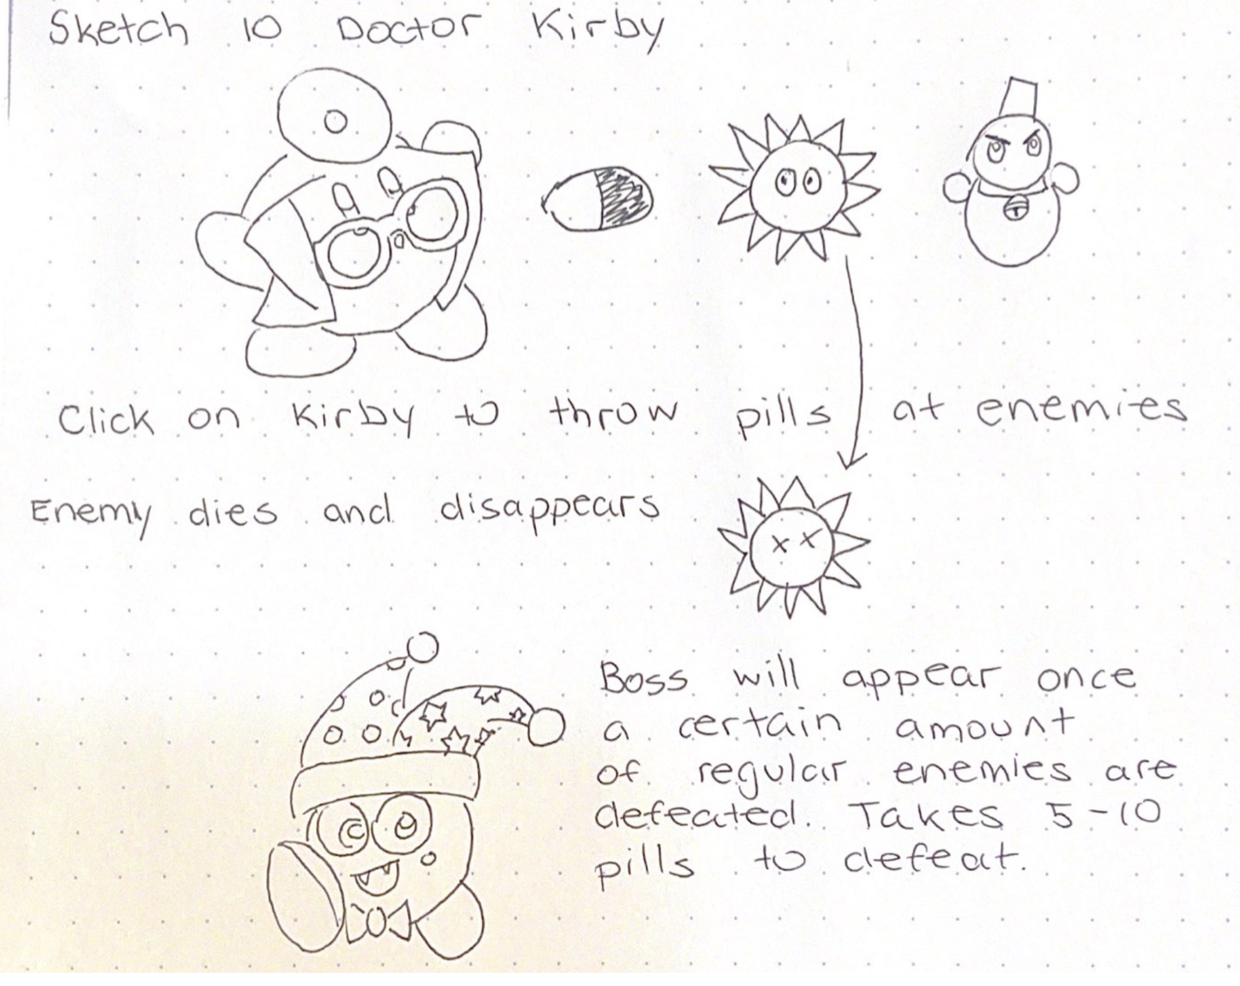 Sketch 10 Doctor Kirby
Click on Kirby to throw pills at enemies
Enemy dies and disappears
Boss will appear once
a certain amount
of regular enemies are
defeated. Takes 5-10
pills to defeat.